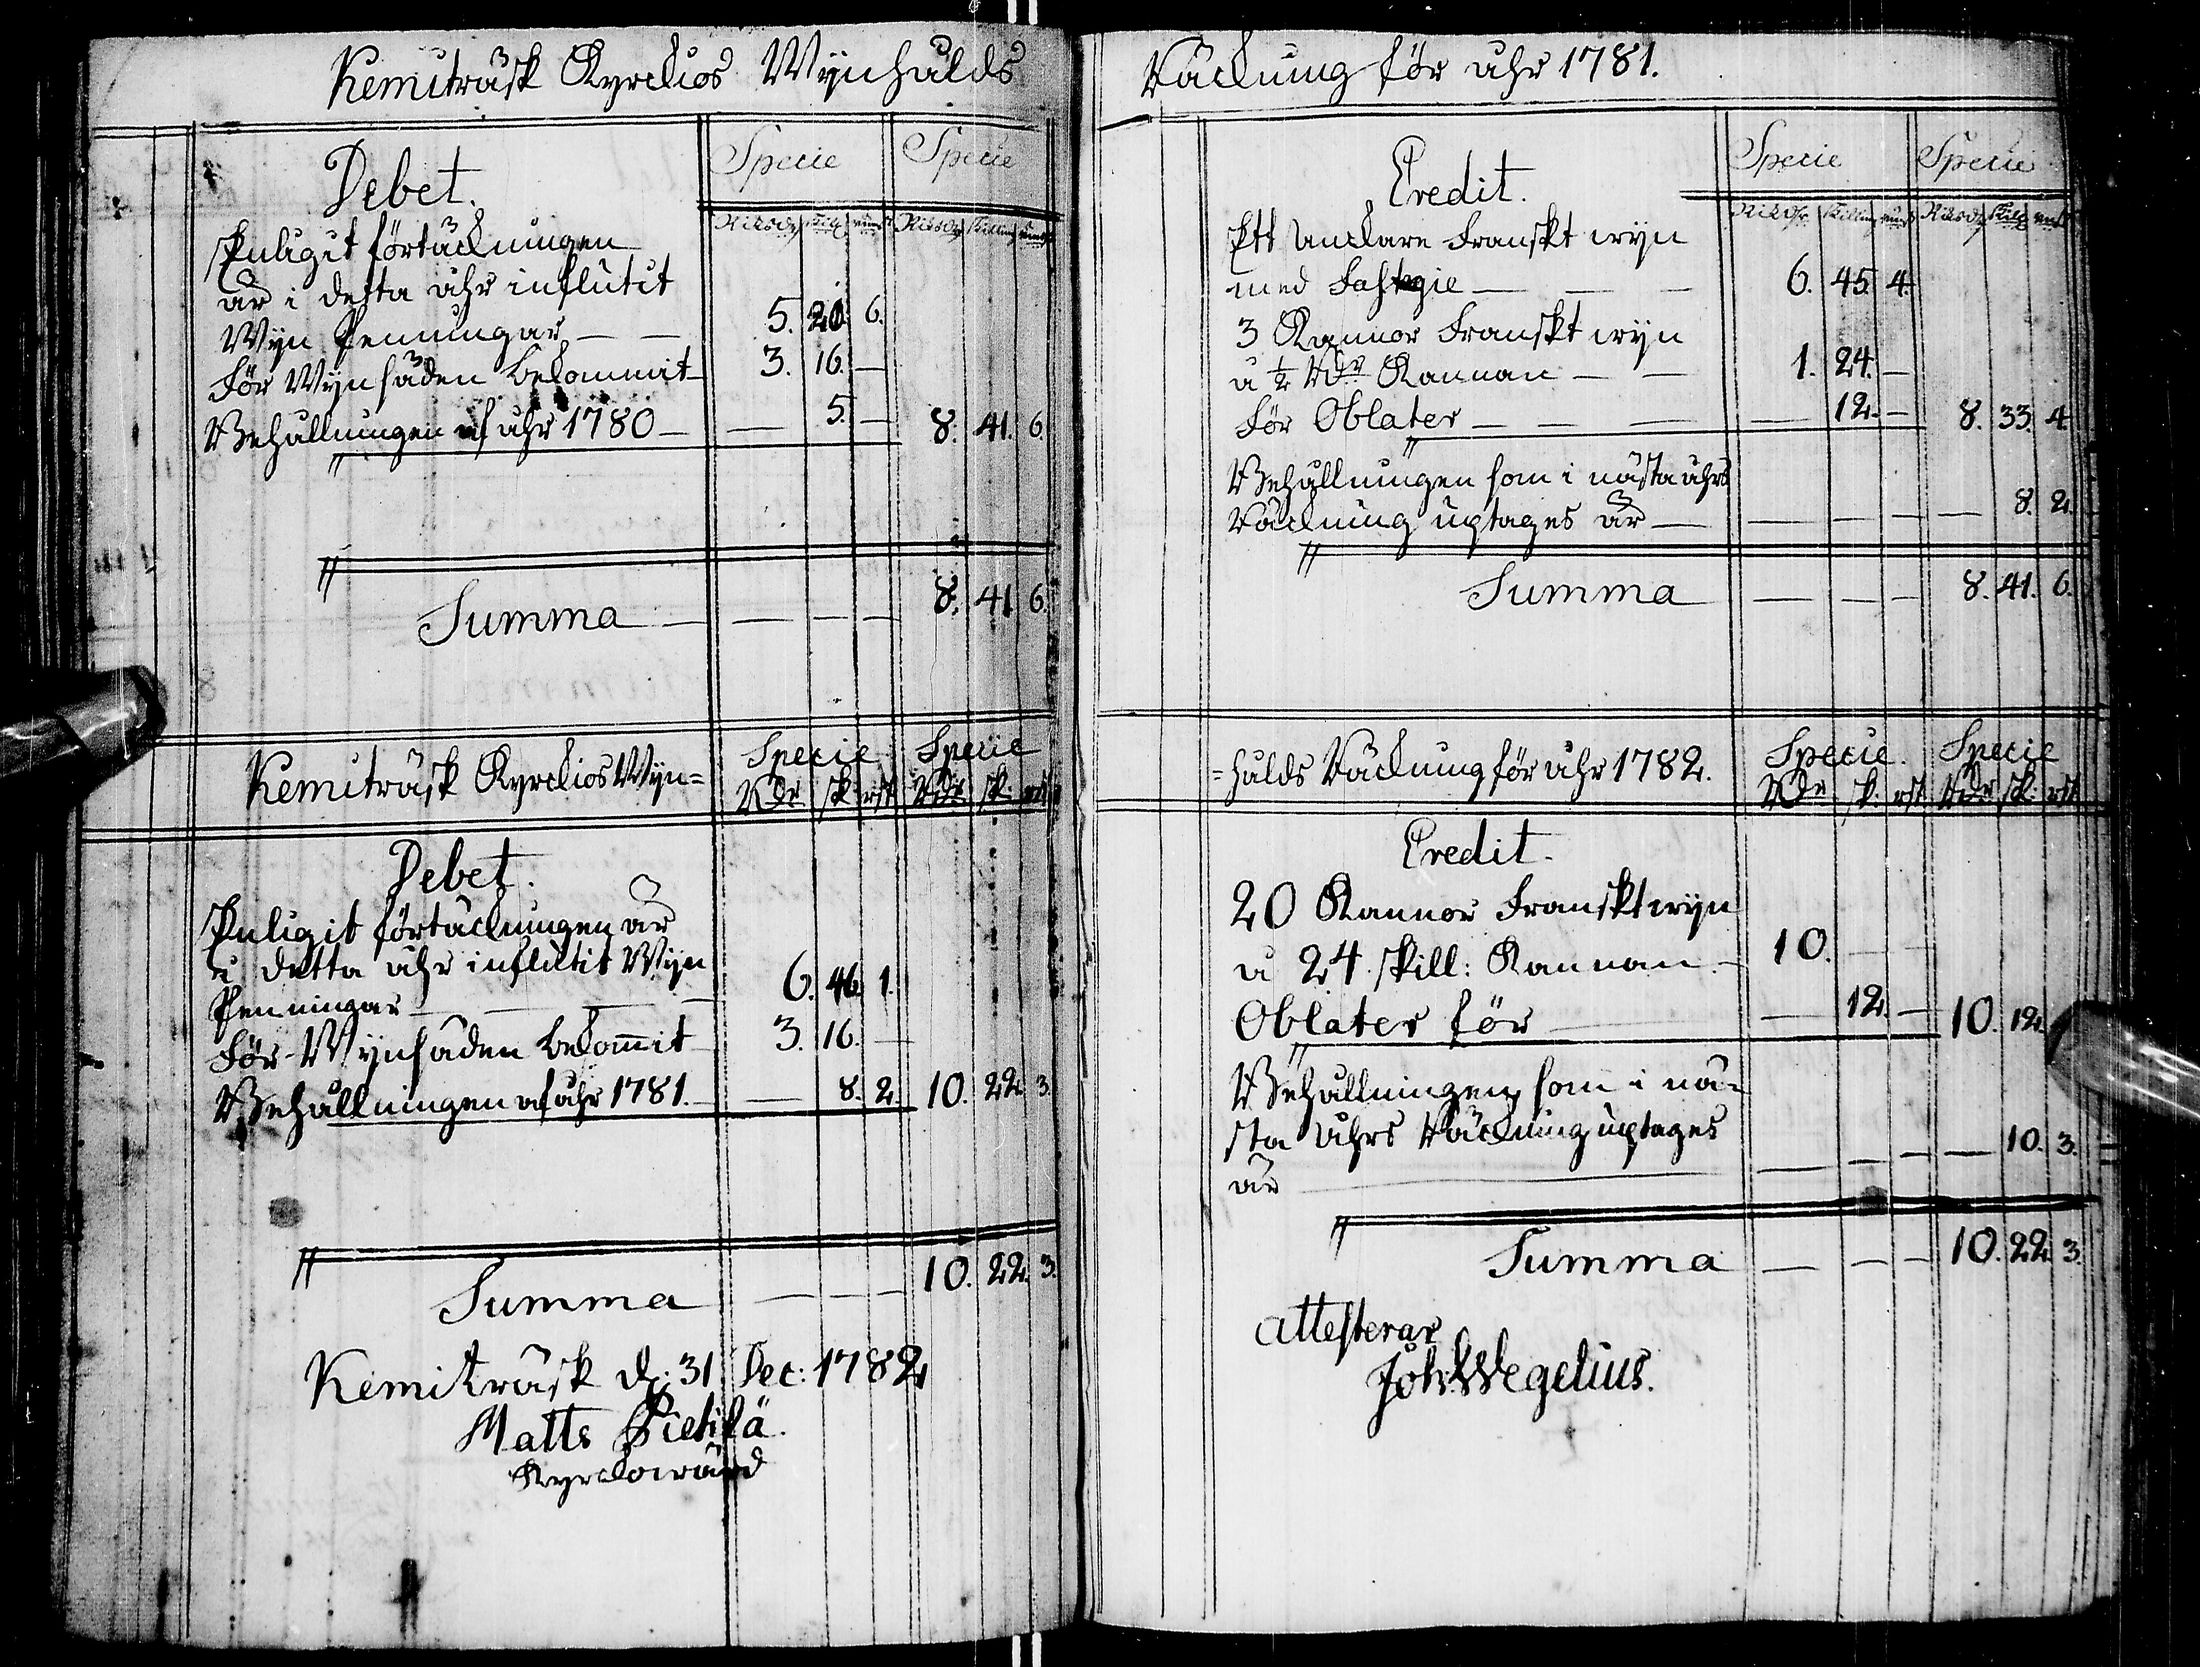 Kemiträsk Kyrckios Wijnhålds
Debet. Specie Specie
Riksdr Skillg runst Riksdr Skilling runst
Enligit förtäckningen
är i detta åhr influtit
Wijn Penningar — — 5. 20. 6.
För Wijnsäden bekommit — 3. 16. —
Behållningen af åhr 1780 — — 5. — 8. 41. 6.
Summa — — — — 8. 41. 6.
Kemiträsk Kyrckios Wijn= Specie Specie
Rdr sk: rst Rdr sk: rst
Debet.
Enligit förtäckningen är
i detta åhr influtit Wijn
Penningar — — — 6. 46. 1.
För Wijnsäden bekommit 3. 16. —
Behållningen af åhr 1781. — — 8. 2. 10. 22. 3.
Summa — — — 10. 22. 3.
Kemiträsk d: 31 Dec: 1782
Matts Pietilä.
Kyrckowärd
Räckning för åhr 1781.
Credit. Specie Specie
Riksdr Skilling runst Riksdr Skillg runst
Ett Anckare Franskt wijn
med Fastagie — — — 6. 45. 4.
3 Kannor Franskt wijn
a ½ Rdr Kannan — — 1. 24. —
För Oblater — — — — 12. — 8. 33. 4.
Behållningen som i nästa åhrs
Räckning uptages är — — — — — 8. 2.
Summa — — — 8. 41. 6.
=hålds Räckning för åhr 1782. Specie. Specie
Rdr sk: rst Rdr sk: rst
Credit.
20 Kannor Franskt wijn
a 24 skill: Kannan. — 10. — —
Oblater för — — 12. — 10. 12.
Behållningen som i nä=
sta åhrs Räckning uptages
är — — — — — 10. 3.
Summa — — — 10. 22. 3.
attesterar
Joh: Wegelius.